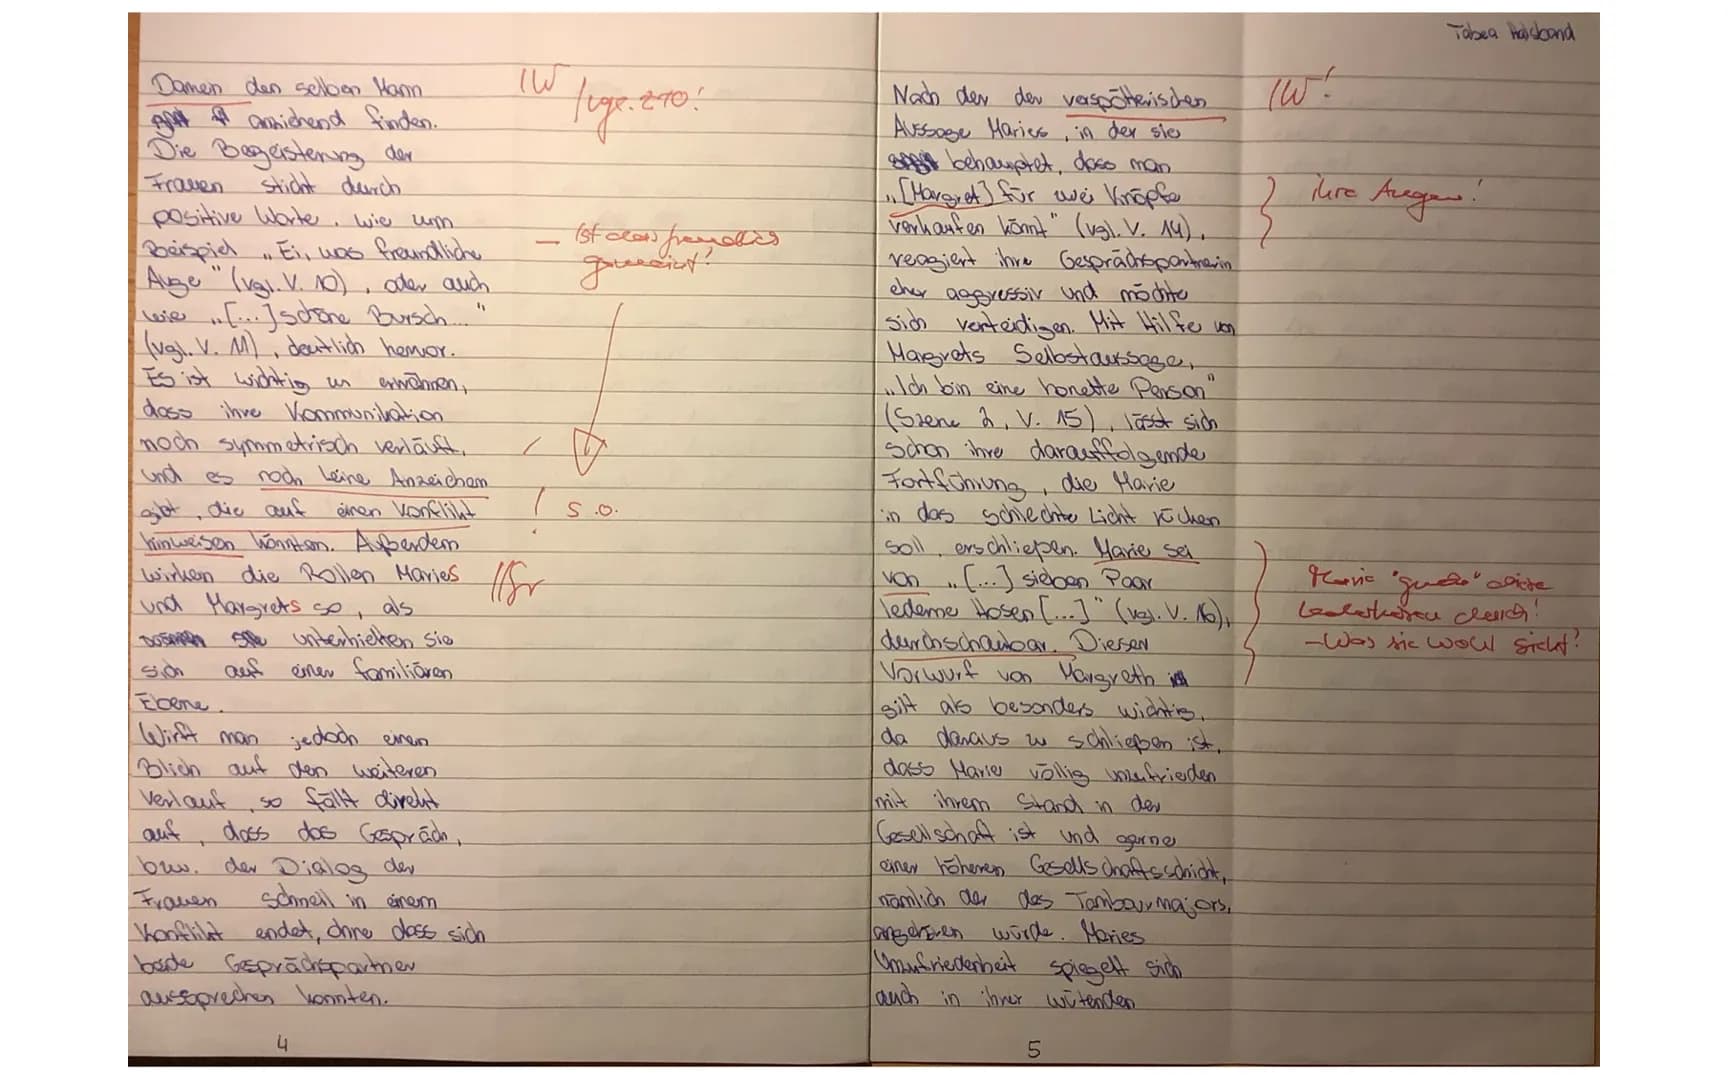 Tabea Halsband
Damen den selben Mann
anziehend finden.
Die Begeisterung der
Frauen sticht durch
positive Worte, wie zum
Beispiel „Ei, was freundliche
Auge" (vgl. V. 10), oder auch
wie „[...] schöne Bursch..."
(vgl. V. 11), deutlich hervor.
Es ist wichtig zu erwähnen,
dass ihre Kommunikation
noch symmetrisch verläuft,
und es noch keine Anzeichen
gibt, die auf einen Konflikt
hinweisen könnten. Außerdem
wirken die Rollen Maries
und Margrets so, als
unterhielten sie
sich auf einer familiären
Ebene.
Wirft man jedoch einen
Blick auf den weiteren
Verlauf, so fällt direkt
auf, dass das Gespräch,
bzw. der Dialog der
Frauen schnell in einem
Konflikt endet, ohne dass sich
beide Gesprächspartner
aussprechen konnten.
4
IW
/vge. 270!
– ist das freundlich
gemeint?
! s.o.
//Gr
Nach der der verspötterischen
Aussage Maries, in der sie
behauptet, dass man
„[Margret] für zwei Knöpfe
verkaufen könnt" (vgl. V. 14),
reagiert ihre Gesprächspartnerin
eher aggressiv und möchte
sich verteidigen. Mit Hilfe von
Magrets Selbstaussage,
„Ich bin eine honette Person"
(Szene 2, V. 15), lässt sich
schon ihre darauffolgende
Fortführung, die Marie
in das schlechte Licht rücken
soll, erschließen. Marie sei
von „[...] sieben Paar
lederne Hosen [...]" (vgl. V. 16),
durchschaubar. Diesen
Vorwurf von Margreth
gilt als besonders wichtig,
da daraus zu schließen ist,
dass Marie völlig unzufrieden
mit ihrem Stand in der
Gesellschaft ist und gerne
einer höheren Gesellschaftsschicht,
nämlich der des Tambourmajors,
angehören würde. Maries
Unzufriedenheit spiegelt sich
auch in ihrer wütenden
5
IW!
ihre Augen!
Marie "guckt" diese
Lederhosen durch!
– Was sie wohl sieht?